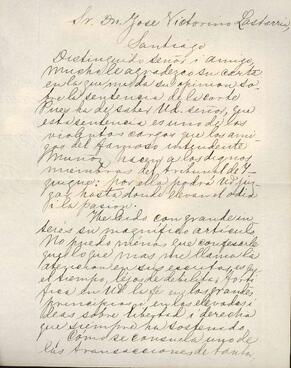 Sr. Dn. Jose Victorino Lastarria,
Santiago
Distinguido señor i amigo,
Mucho le agradezco su carta
en la que me da su opinion so-
bre la sentencia de la corte
Pues ha de saber Ud. señor, que
esta sentencia es uno de los
violentos cargos que los ami-
gos del famoso intendente
Muñoz hacen a los dignos
miembros del tribunal de I-
quique. Por ella podrá Ud. juz-
gar hasta donde llevan el odio
i la pasion.
He leido con grande in-
teres su magnífico articulo.
No puedo menos que confesarle
que lo que mas me llama la
atencion en sus escritos, es que
el tiempo, lejos de debilitar, forti-
fica en Ud. la fé en los grandes
principios i en los elevados i-
deas sobre libertad i derecho
que siempre ha sostenido.
Como se consuela uno de
las transacciones de tanto